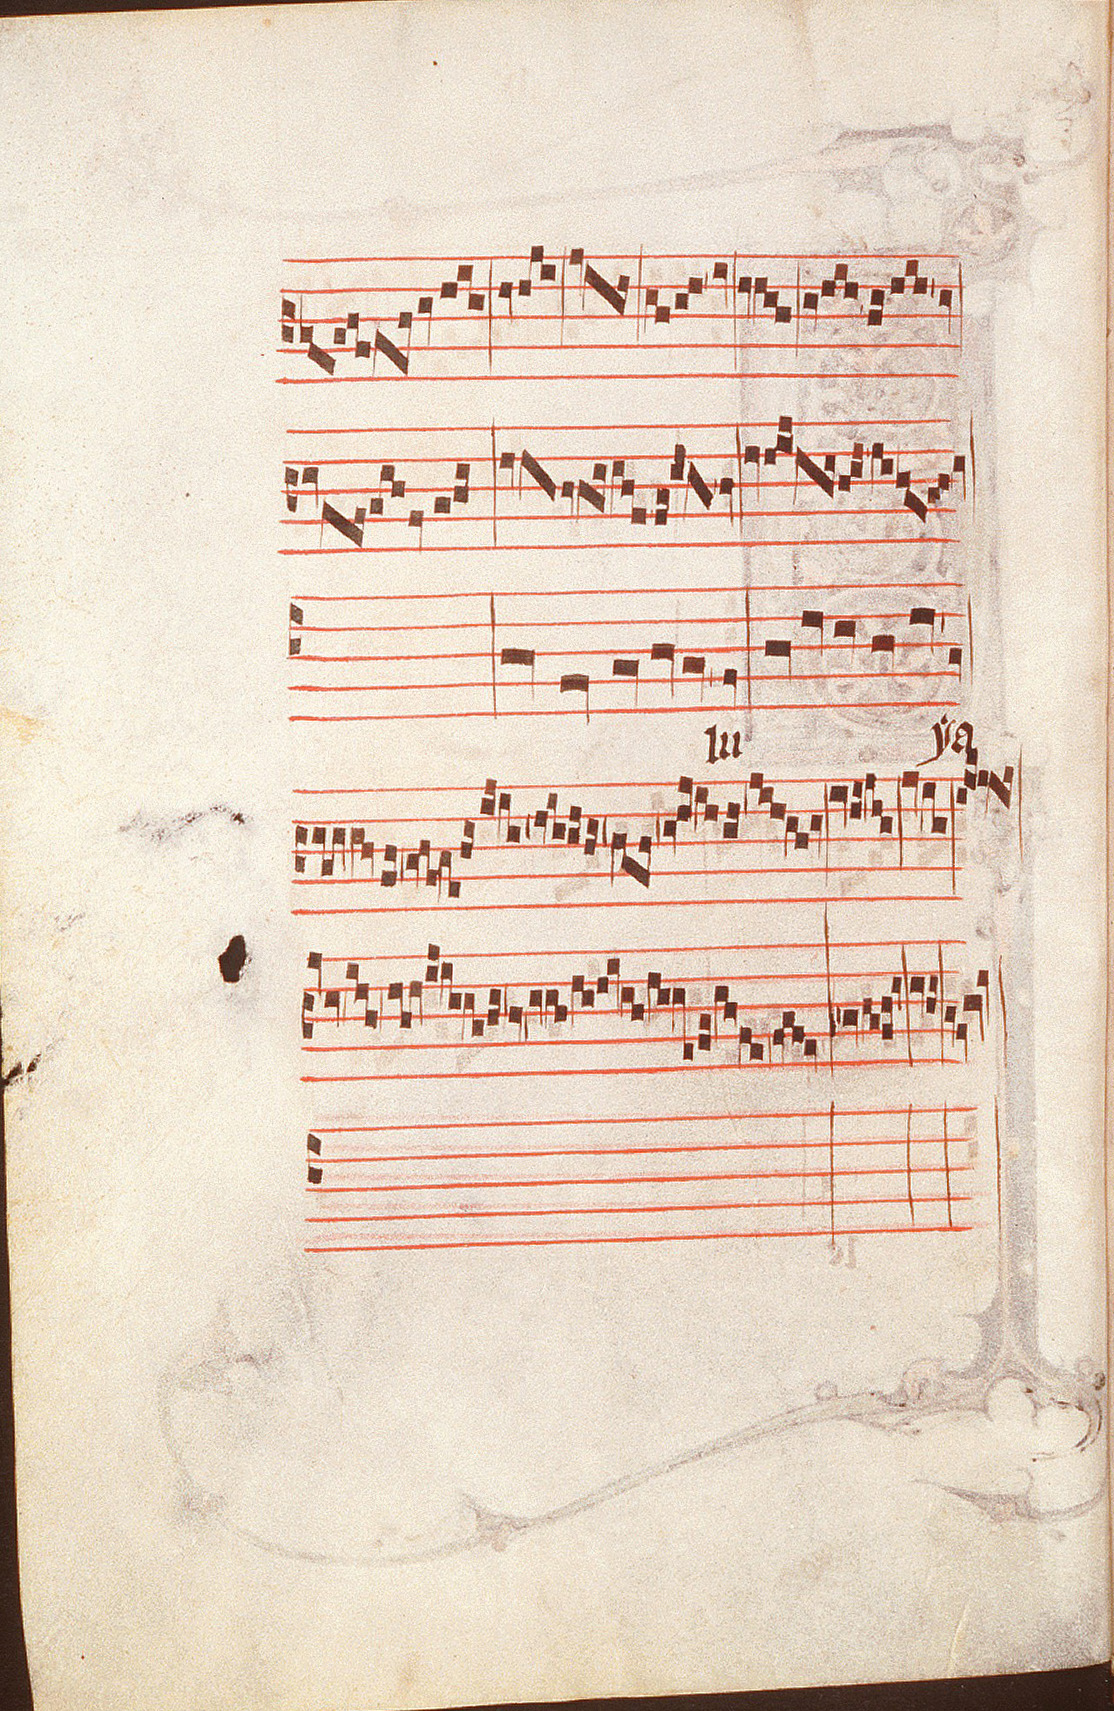 lu ya